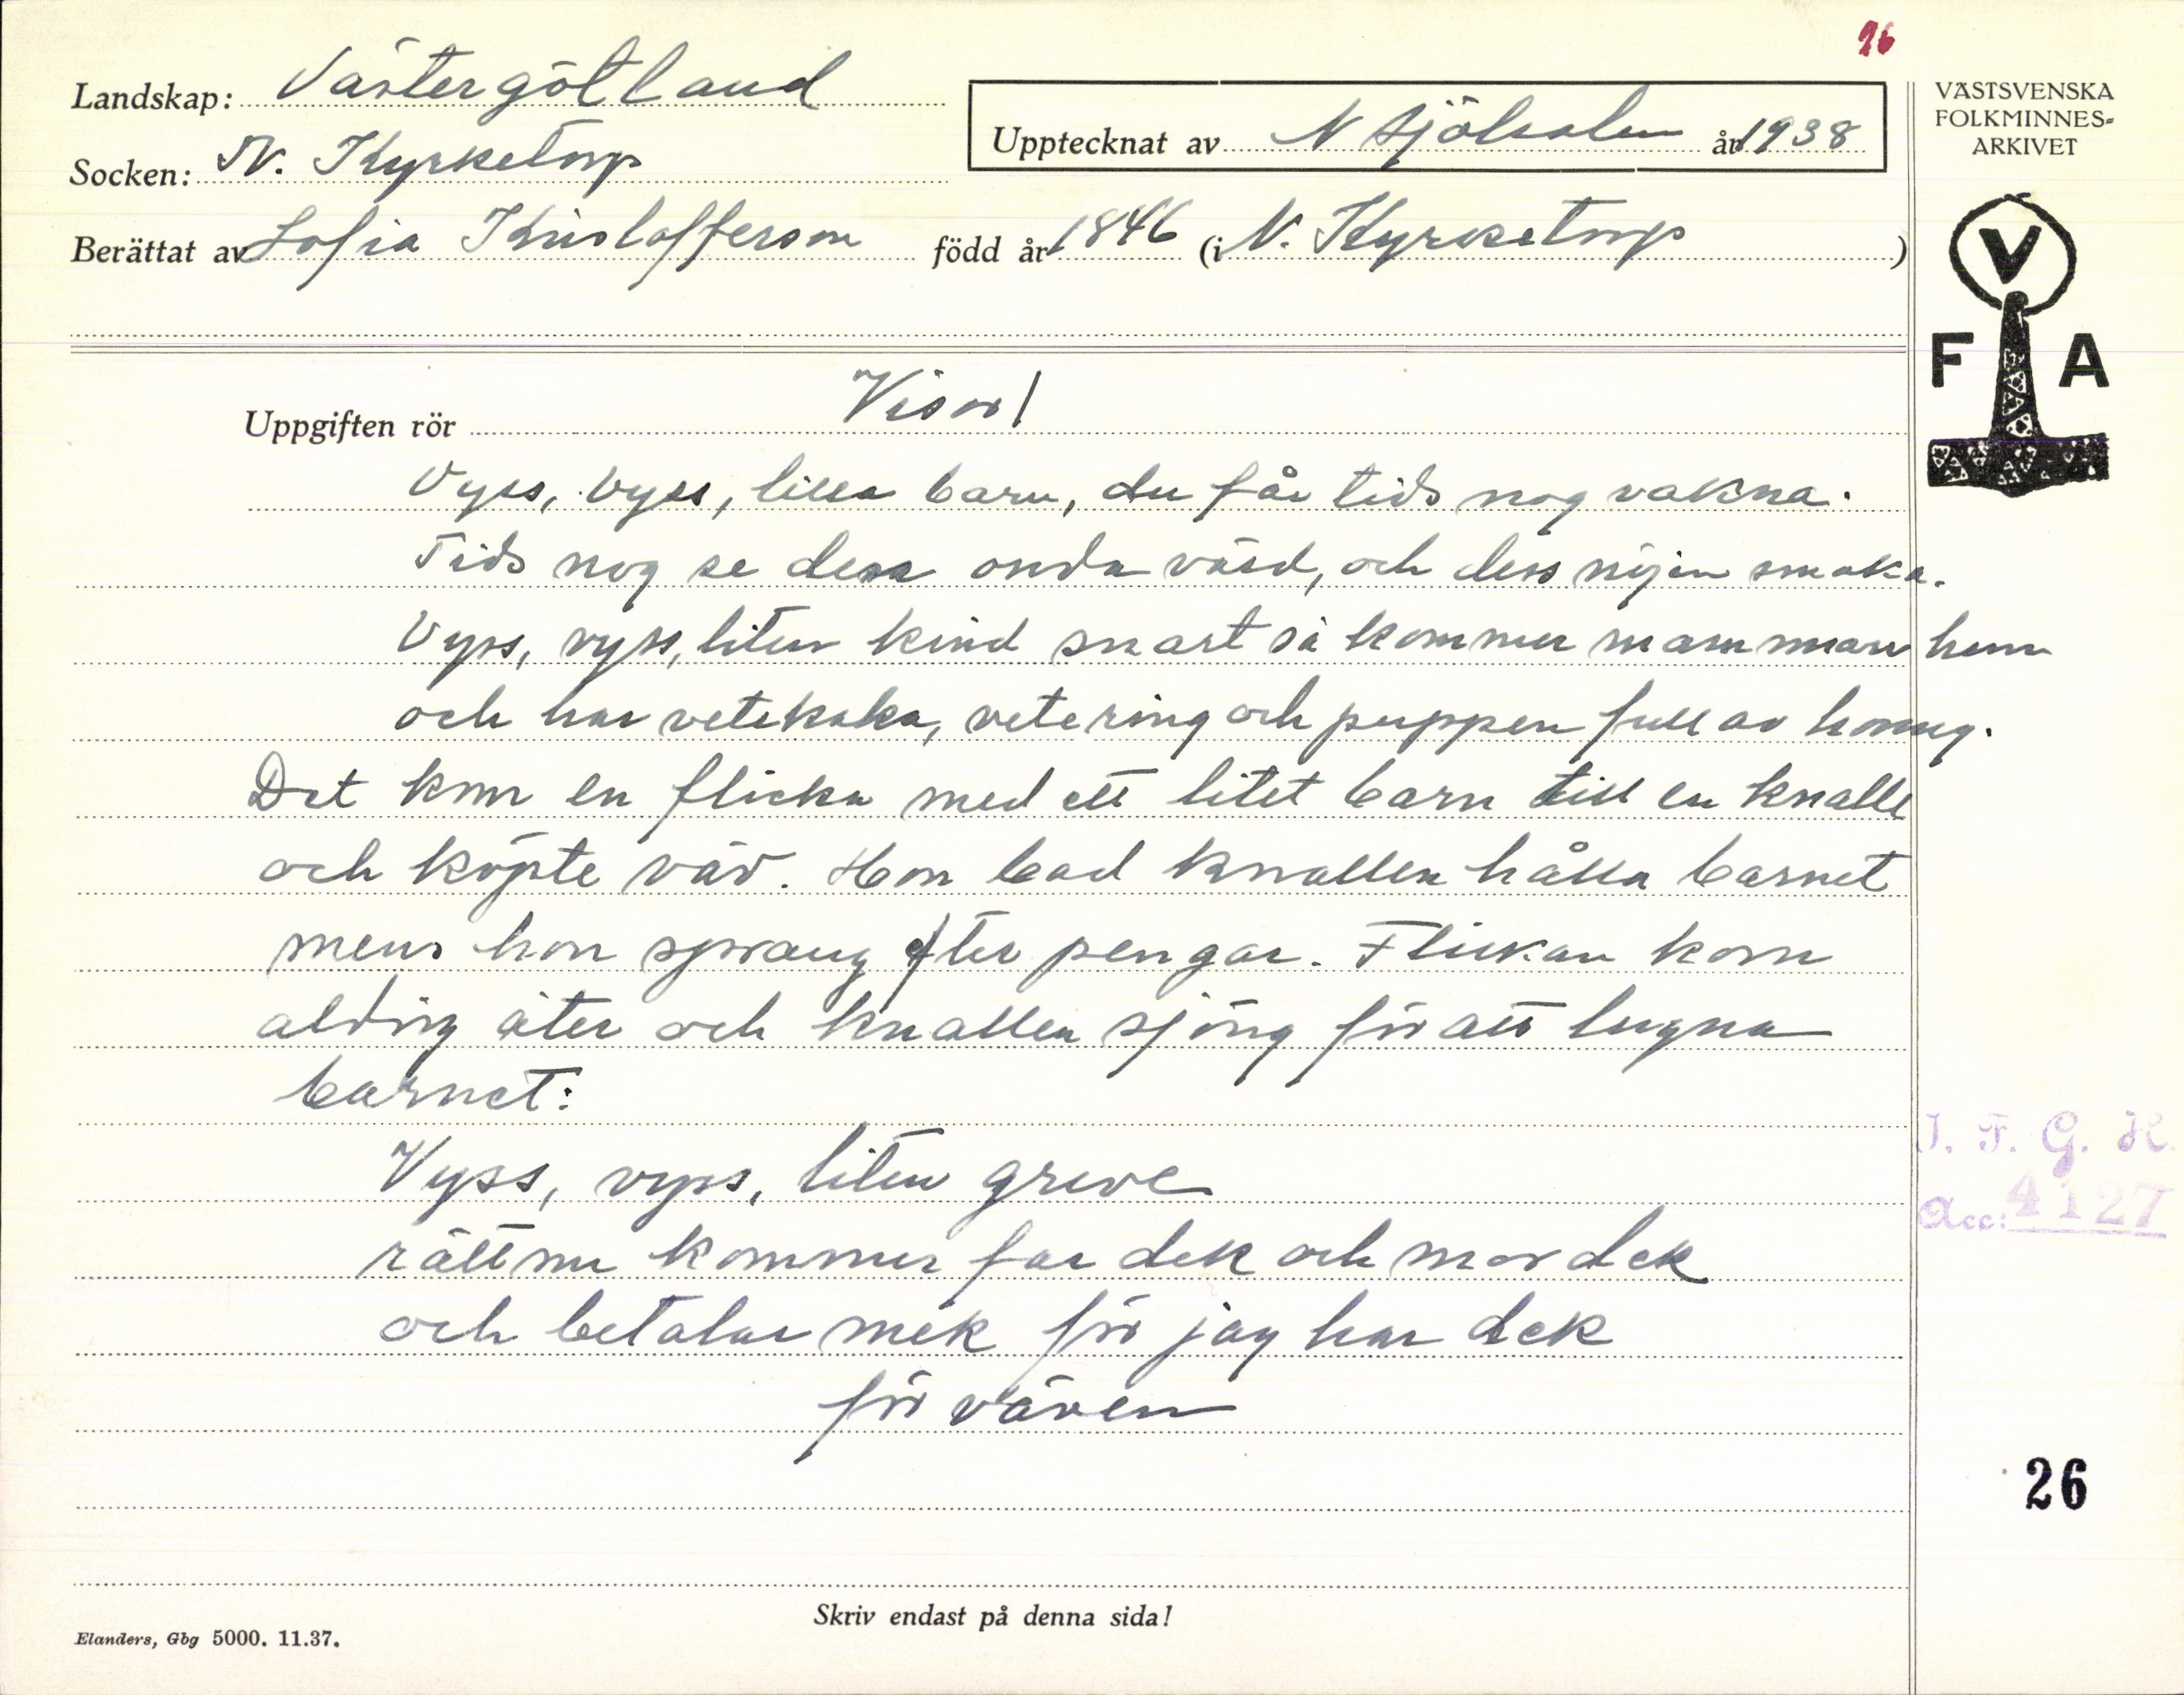 26
Landskap: Västergötland
Socken: N. Kyrketorp
Upptecknat av N Hjölsalen år 1938
Berättat av Sofia Kristofferson född år 1846 (i N. Kyrketorp)
VÄSTSVENSKA
FOLKMINNES=
ARKIVET
V
F A
Uppgiften rör Visor/
Vyss, vyss, lilla barn, du får tids nog vakna.
Tids nog se dessa onda värd, och dess nöjen smaka.
Vyss, vyss, liten kind snart så kommer mamman hem
och har vetekaka, vetering och puppen full av honug.
Det kom en flicka med ett litet barn till en knalle
och köpte väv. Hon bad knallen hålla barnet
mens hon sprang efter pengar. Flickan kom
aldrig åter och knallen sjöng för att lugna
barnet:
Vyss, vyss, liten greve
rätt nu kommer far dek och mor dek
och betalar mek för jag har dek
för väven
I. F. G. H.
Acc: 4127
26
Skriv endast på denna sida!
Elanders, Gbg 5000. 11.37.